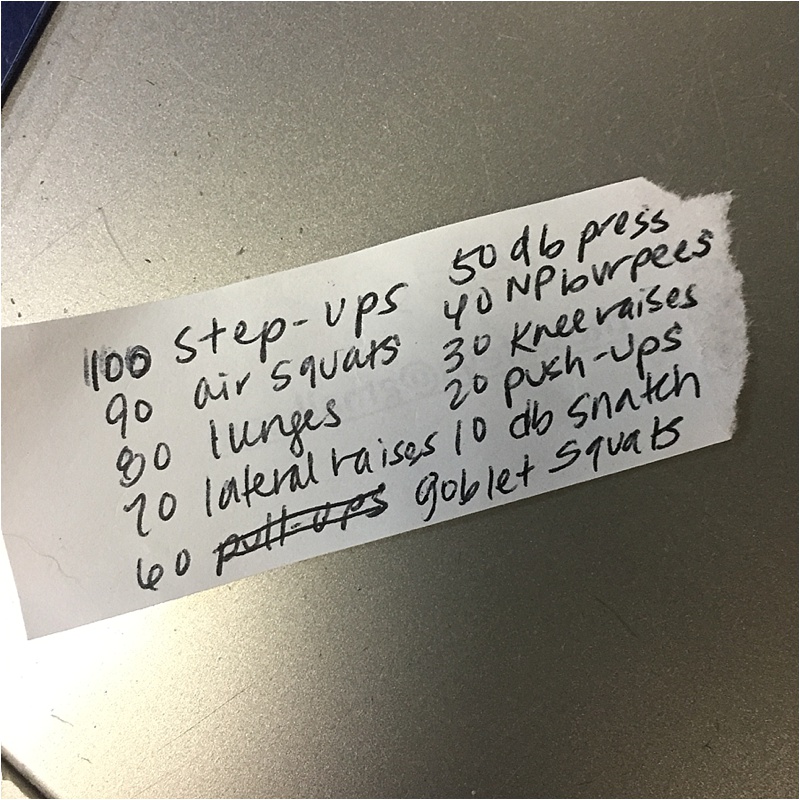 100 step-ups
90 air squats
80 lunges
70 lateral raises
60 pull-ups goblet squats
50 db press
40 NP burpees
30 knee raises
20 push-ups
10 db snatch